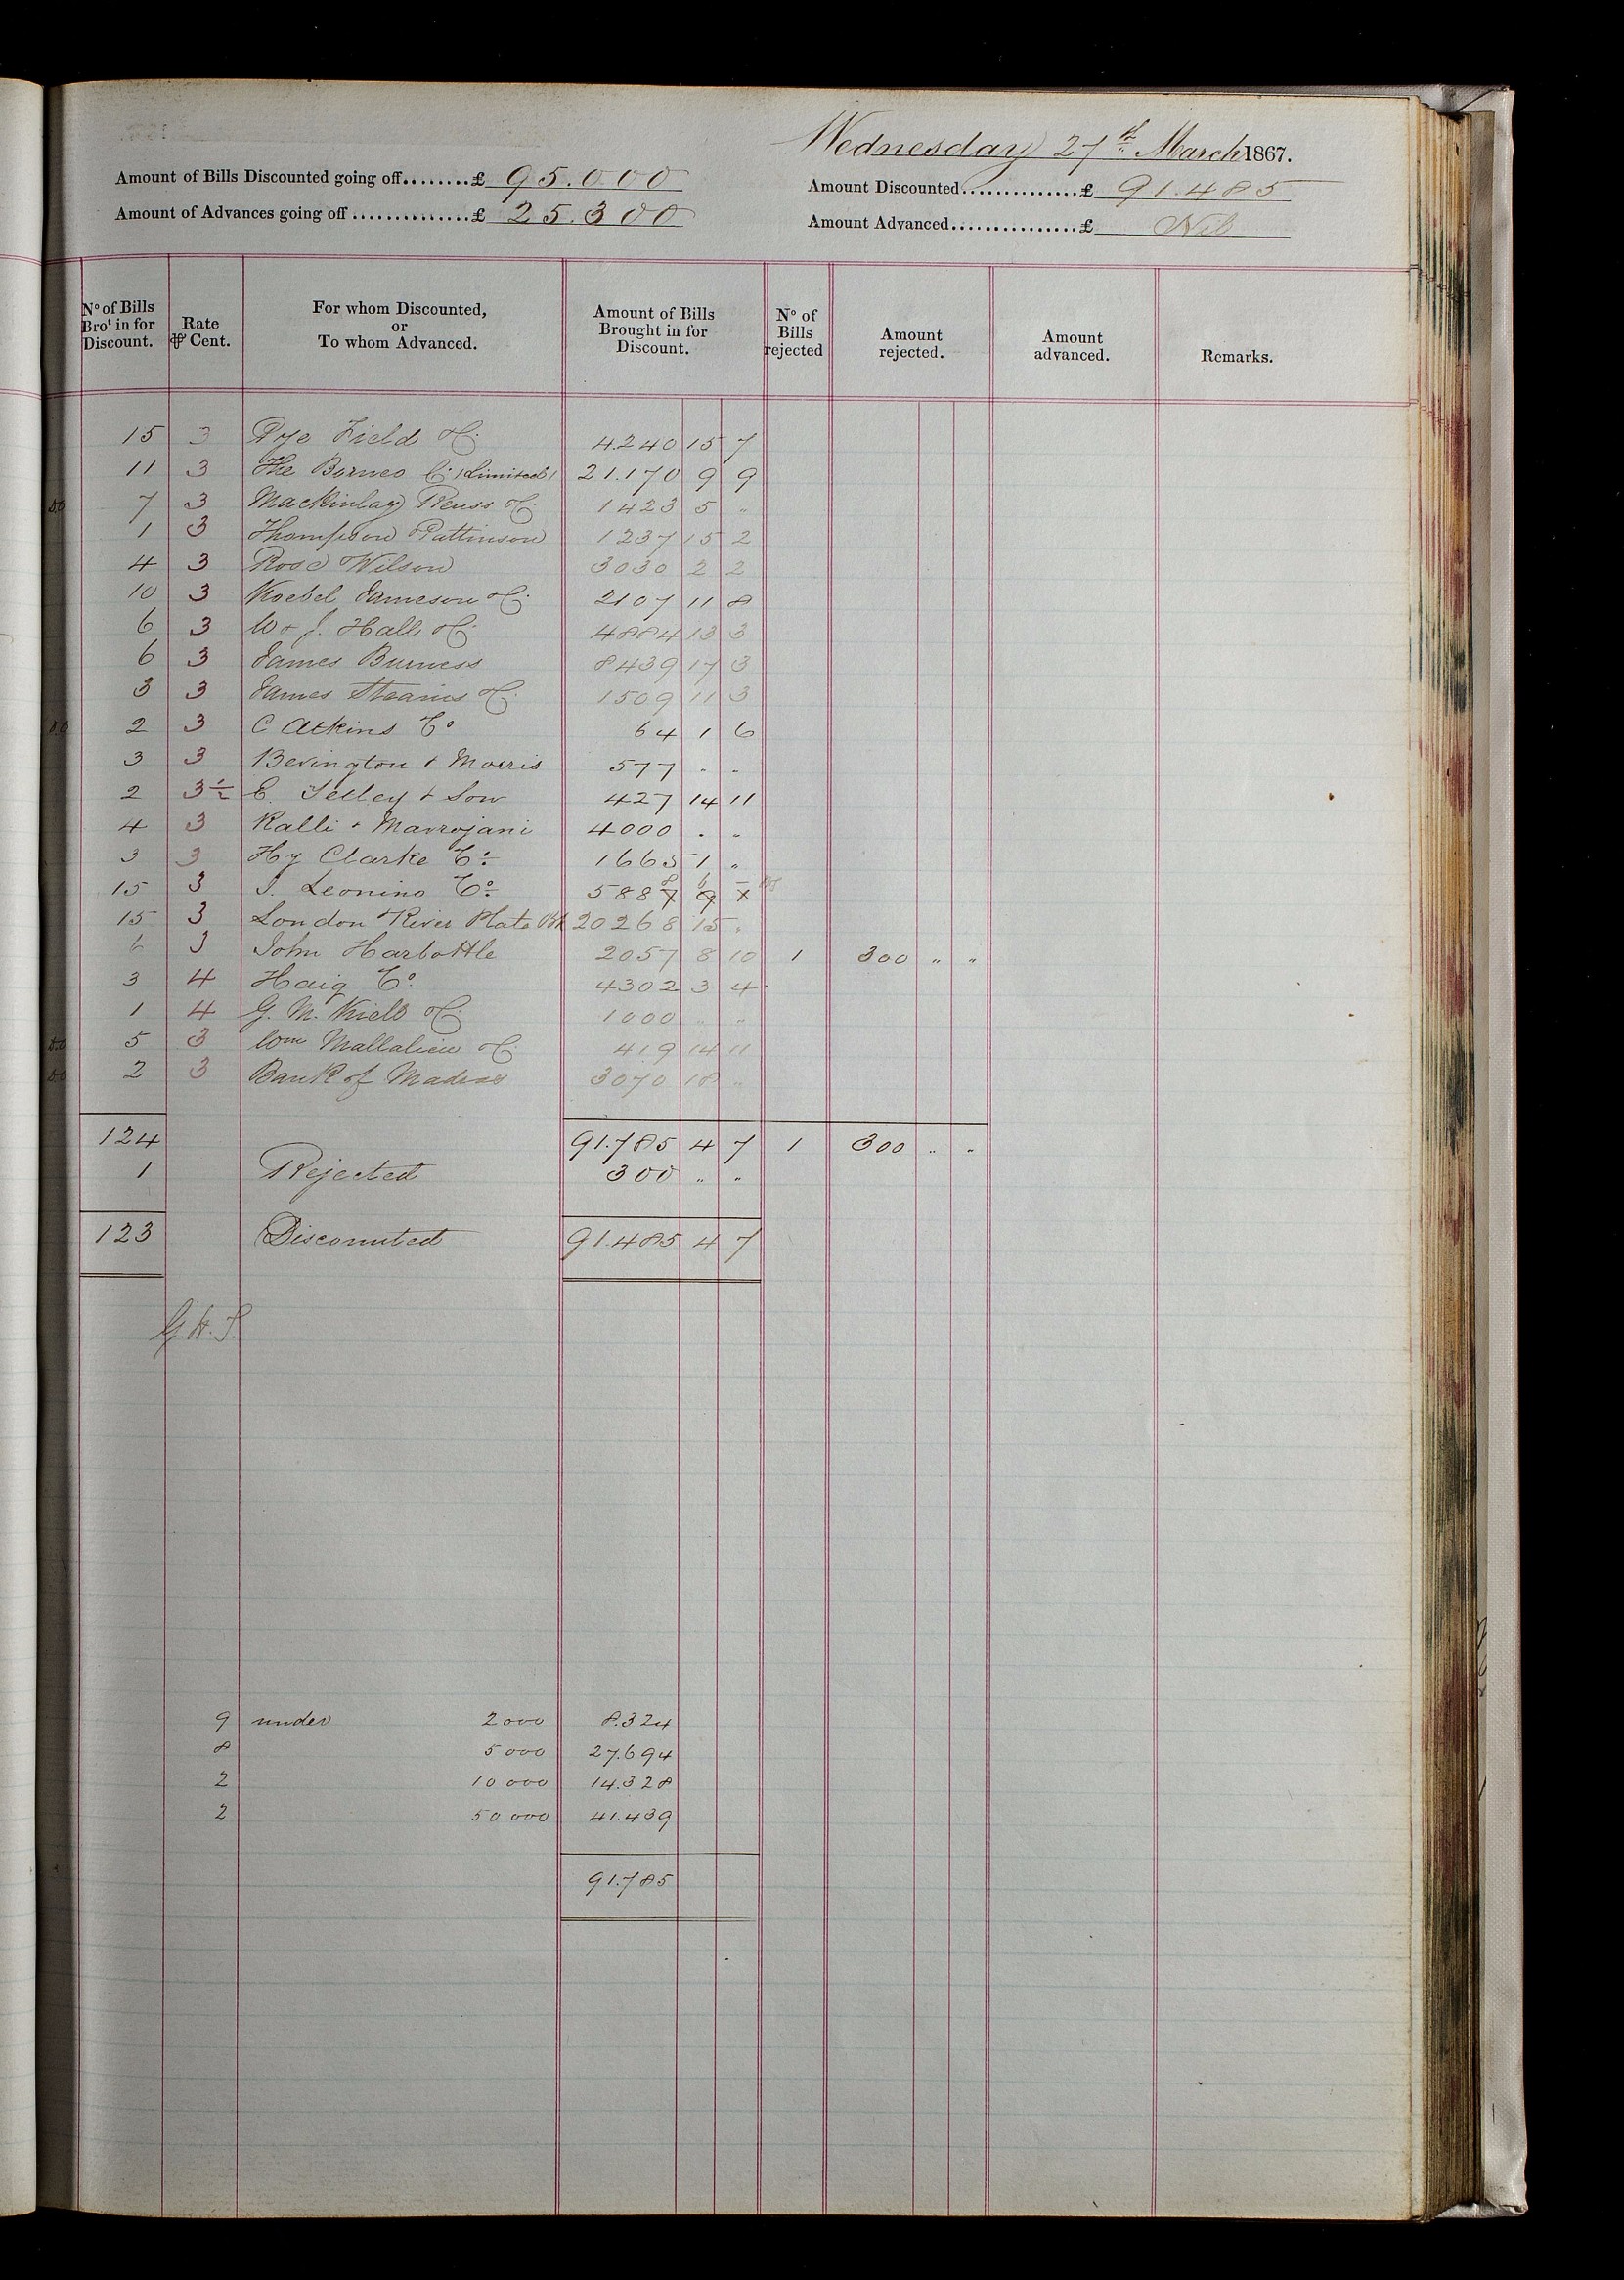 Wednesday 27th March 1867.
Amount of Bills Discounted going off........£ 95.000
Amount Discounted..............£ 91.485
Amount of Advances going off..............£ 25.300
Amount Advanced...............£ Nil
No of Bills Brot in for Discount. Rate ⅌ Cent. For whom Discounted, or To whom Advanced. Amount of Bills Brought in for Discount. No of Bills rejected Amount rejected. Amount advanced. Remarks.
15 3 Pye Field & Co. 4.240 15 7
11 3 The Borneo Co. (Limited) 21.170 9 9
7 3 Mackinlay Reuss & Co. 1423 5 "
1 3 Thompson Pattinson 1237 15 2
4 3 Rose Wilson 3030 2 2
10 3 Koebel Jameson & Co. 2107 11 8
6 3 W & J. Hall & Co. 4884 13 3
6 3 James Burness 8439 17 3
3 3 James Stearns & Co. 1509 11 3
2 3 C Atkins Co 64 1 6
3 3 Bevington & Morris 577 " "
2 3½ E. Tetley & Son 427 14 11
4 3 Ralli & Mavrojani 4000 " "
3 3 Hy Clarke Co. 1665 1 "
15 3 Leonino Co. 5888 6 –
15 3 London & River Plate Bk 20268 15 "
6 3 John Harbottle 2057 8 10 1 300 " "
3 4 Haig Co. 4302 3 4
1 4 G. M. Kiell & Co. 1000 " "
5 3 Wm Mallalieu & Co. 419 14 11
2 3 Bank of Madras 3070 18 "
124 91.785 4 7 1 300 " "
1 Rejected 300 " "
123 Discounted 91.485 4 7
G.H.S.
9 under 2000 8.324
8 5000 27.694
2 10000 14.328
2 50000 41.439
91.785